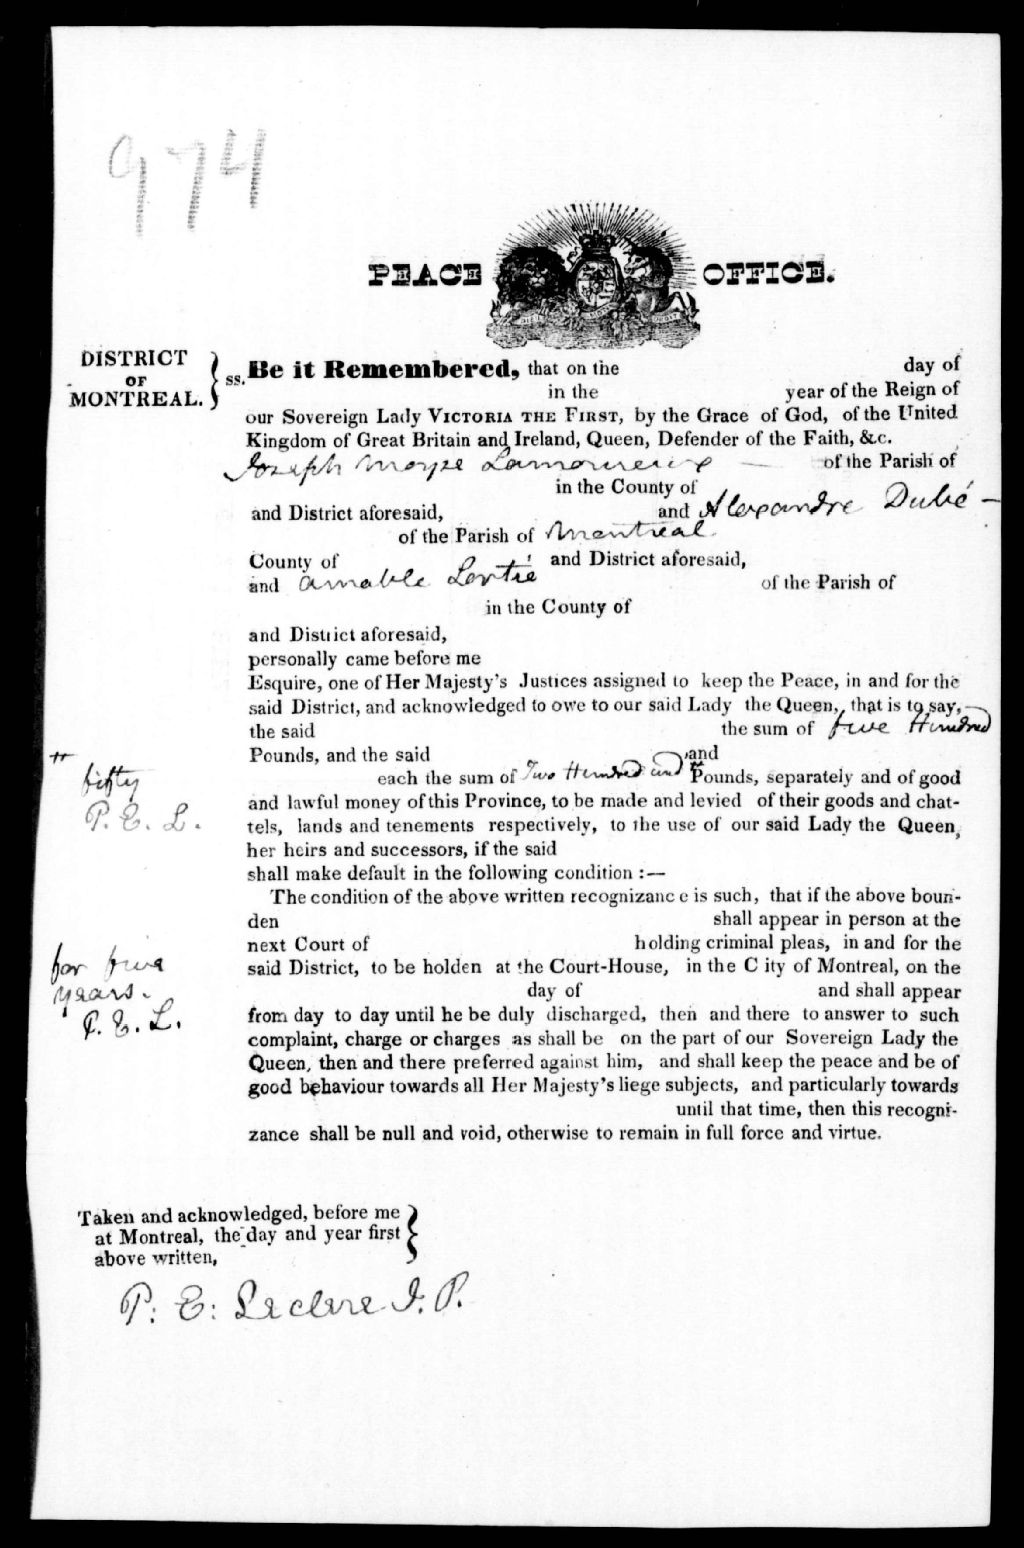 974
PEACE OFFICE.
DISTRICT
OF
MONTREAL.
ss. Be it Remembered, that on the day of
in the year of the Reign of
our Sovereign Lady VICTORIA THE FIRST, by the Grace of God, of the United
Kingdom of Great Britain and Ireland, Queen, Defender of the Faith, &c.
Joseph Moyse Lamoureux — of the Parish of
in the County of
and District aforesaid, and Alexandre Dubé —
of the Parish of Montreal
County of and District aforesaid,
and Amable Lortie of the Parish of
in the County of
and District aforesaid,
personally came before me
Esquire, one of Her Majesty's Justices assigned to keep the Peace, in and for the
said District, and acknowledged to owe to our said Lady the Queen, that is to say,
the said the sum of five Hundred
Pounds, and the said and
each the sum of Two Hundred and # Pounds, separately and of good
# fifty
P. E. L.
and lawful money of this Province, to be made and levied of their goods and chat-
tels, lands and tenements respectively, to the use of our said Lady the Queen,
her heirs and successors, if the said
shall make default in the following condition :—
The condition of the above written recognizance is such, that if the above boun-
den shall appear in person at the
next Court of holding criminal pleas, in and for the
said District, to be holden at the Court-House, in the City of Montreal, on the
day of and shall appear
for five
years.
P. E. L.
from day to day until he be duly discharged, then and there to answer to such
complaint, charge or charges as shall be on the part of our Sovereign Lady the
Queen, then and there preferred against him, and shall keep the peace and be of
good behaviour towards all Her Majesty's liege subjects, and particularly towards
until that time, then this recogni-
zance shall be null and void, otherwise to remain in full force and virtue.
Taken and acknowledged, before me
at Montreal, the day and year first
above written,
P. E. Leclere J. P.